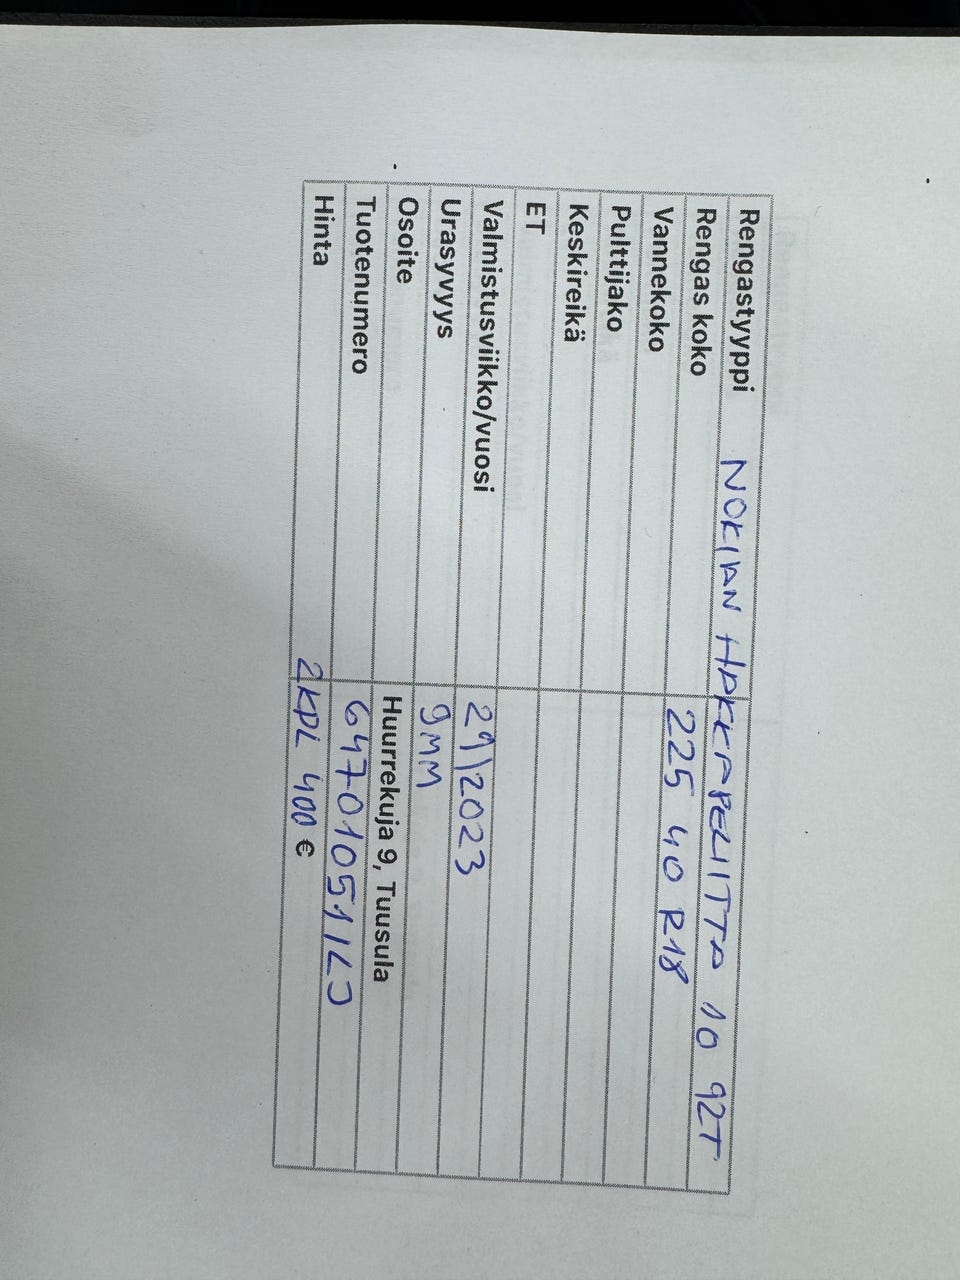 Rengastyyppi NOKIAN HAKKAPELIITTA 10 92T
Rengas koko 225 40 R18
Vannekoko
Pulttijako
Keskireikä
ET
Valmistusviikko/vuosi 29/2023
Urasyvyys 9MM
Osoite Huurrekuja 9, Tuusula
Tuotenumero
Hinta 2KPL 400 €